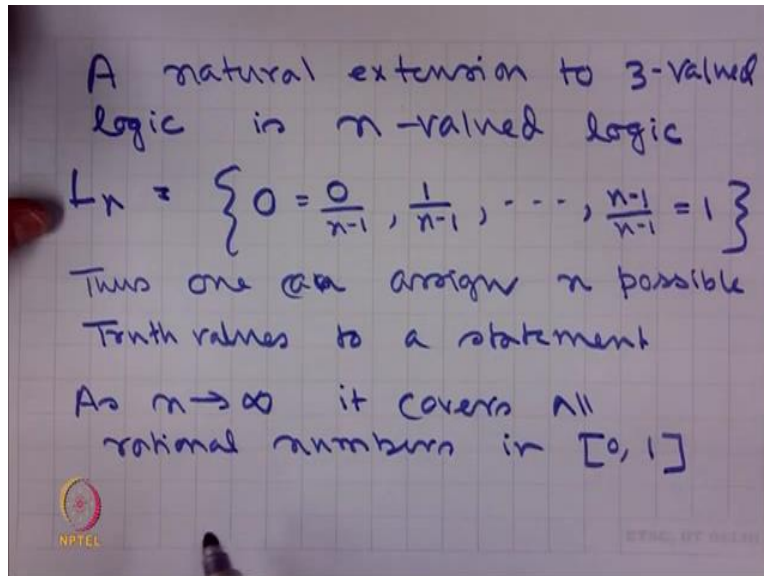 A natural extension to 3-valued
logic is n-valued logic
Ln = { 0 = 0/(n-1), 1/(n-1), ----, (n-1)/(n-1) = 1 }
Thus one can assign n possible
Truth values to a statement
As n→∞ it covers all
rational numbers in [0, 1]
NPTEL